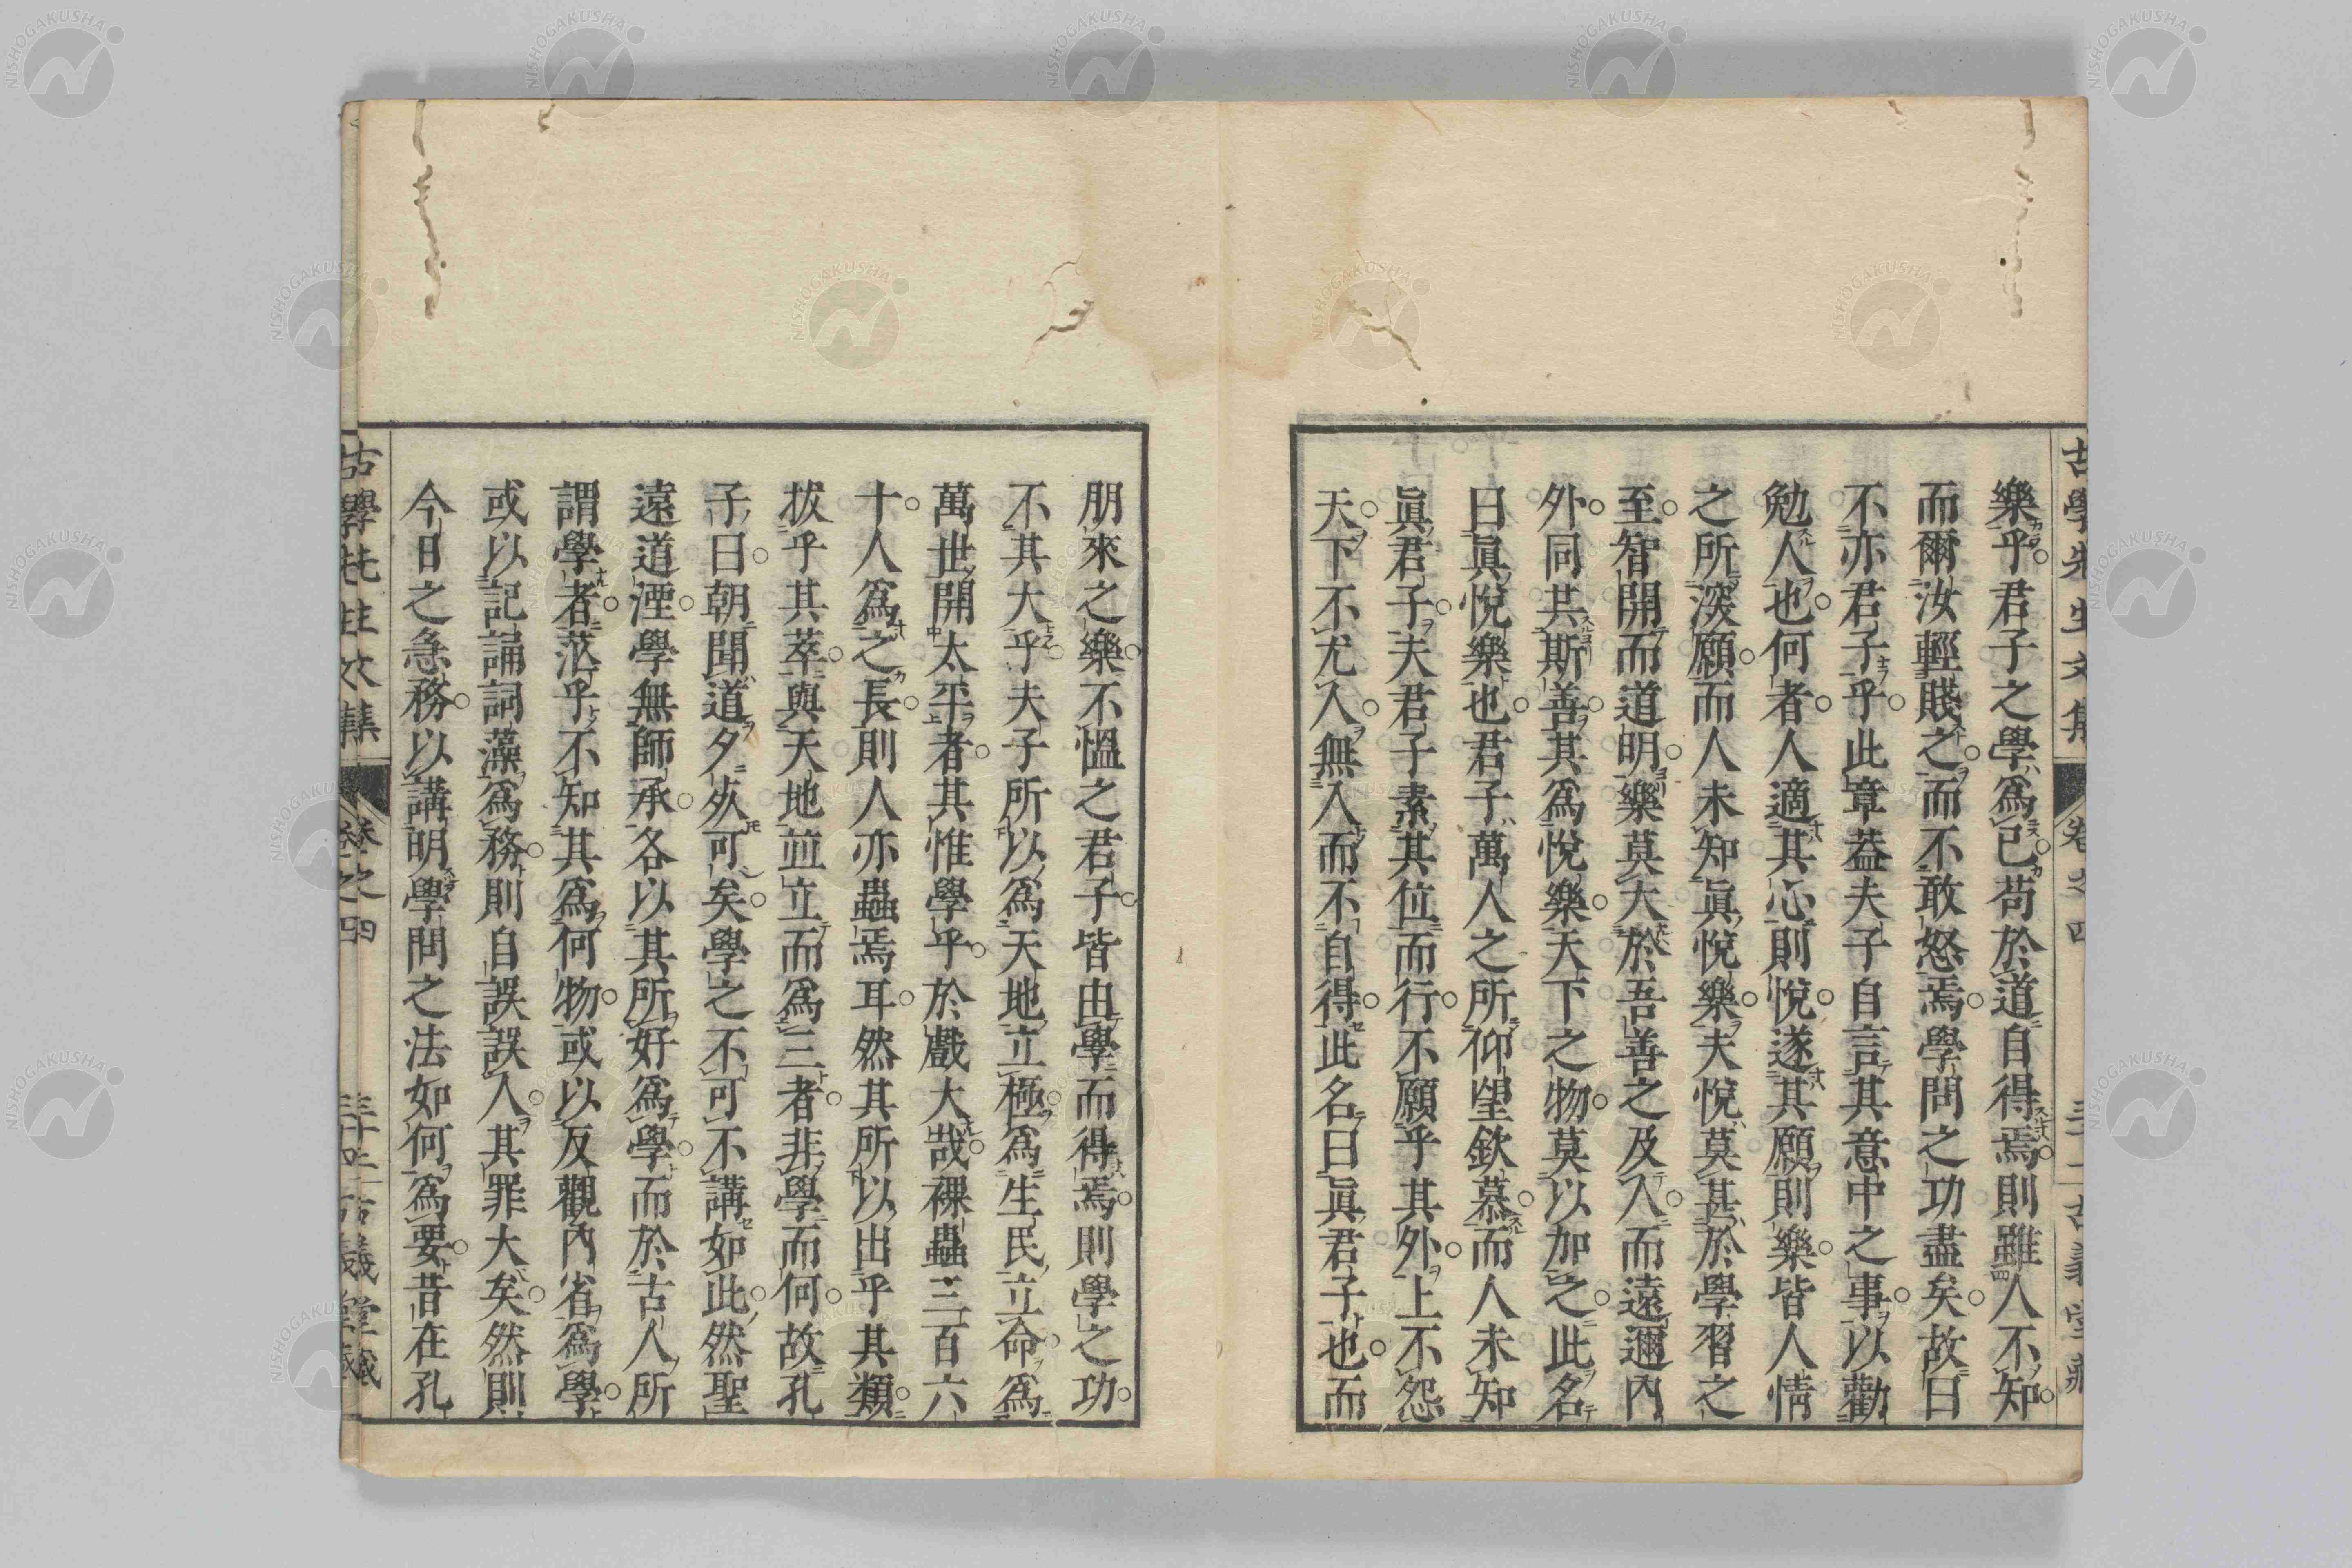 樂乎君子之學爲己苟於道自得焉則雖人不知
而爾汝輕賤之而不敢怒焉學問之功盡矣故曰
不亦君子乎此章葢夫子自言其意中之事以勸
勉人也何者人適其心則悅遂其願則樂皆人情
之所深願而人未知眞悅樂夫悅莫甚於學習之
至智開而道明樂莫大於吾善之及人而遠邇內
外同共斯善其爲悅樂天下之物莫以加之此名
曰眞悅樂也君子萬人之所仰望欽慕而人未知
眞君子夫君子素其位而行不願乎其外上不怨
天下不尤人無入而不自得此名曰眞君子也而
朋來之樂不慍之君子皆由學而得焉則學之功
不其大乎夫子所以爲天地立極爲生民立命爲
萬世開太平者其惟學乎於戲大哉裸蟲三百六
十人爲之長則人亦蟲焉耳然其所以出乎其類
拔乎其萃與天地並立而爲三者非學而何故孔
子曰朝聞道夕死可矣學之不可不講如此然聖
遠道湮學無師承各以其所好爲學而於古人所
謂學者茫乎不知其爲何物或以反觀內省爲學
或以記誦詞藻爲務則自誤誤人其罪大矣然則
今日之急務以講明學問之法如何爲要昔在孔
古學先生文集 卷之四 古義堂藏
NISHOGAKUSHA